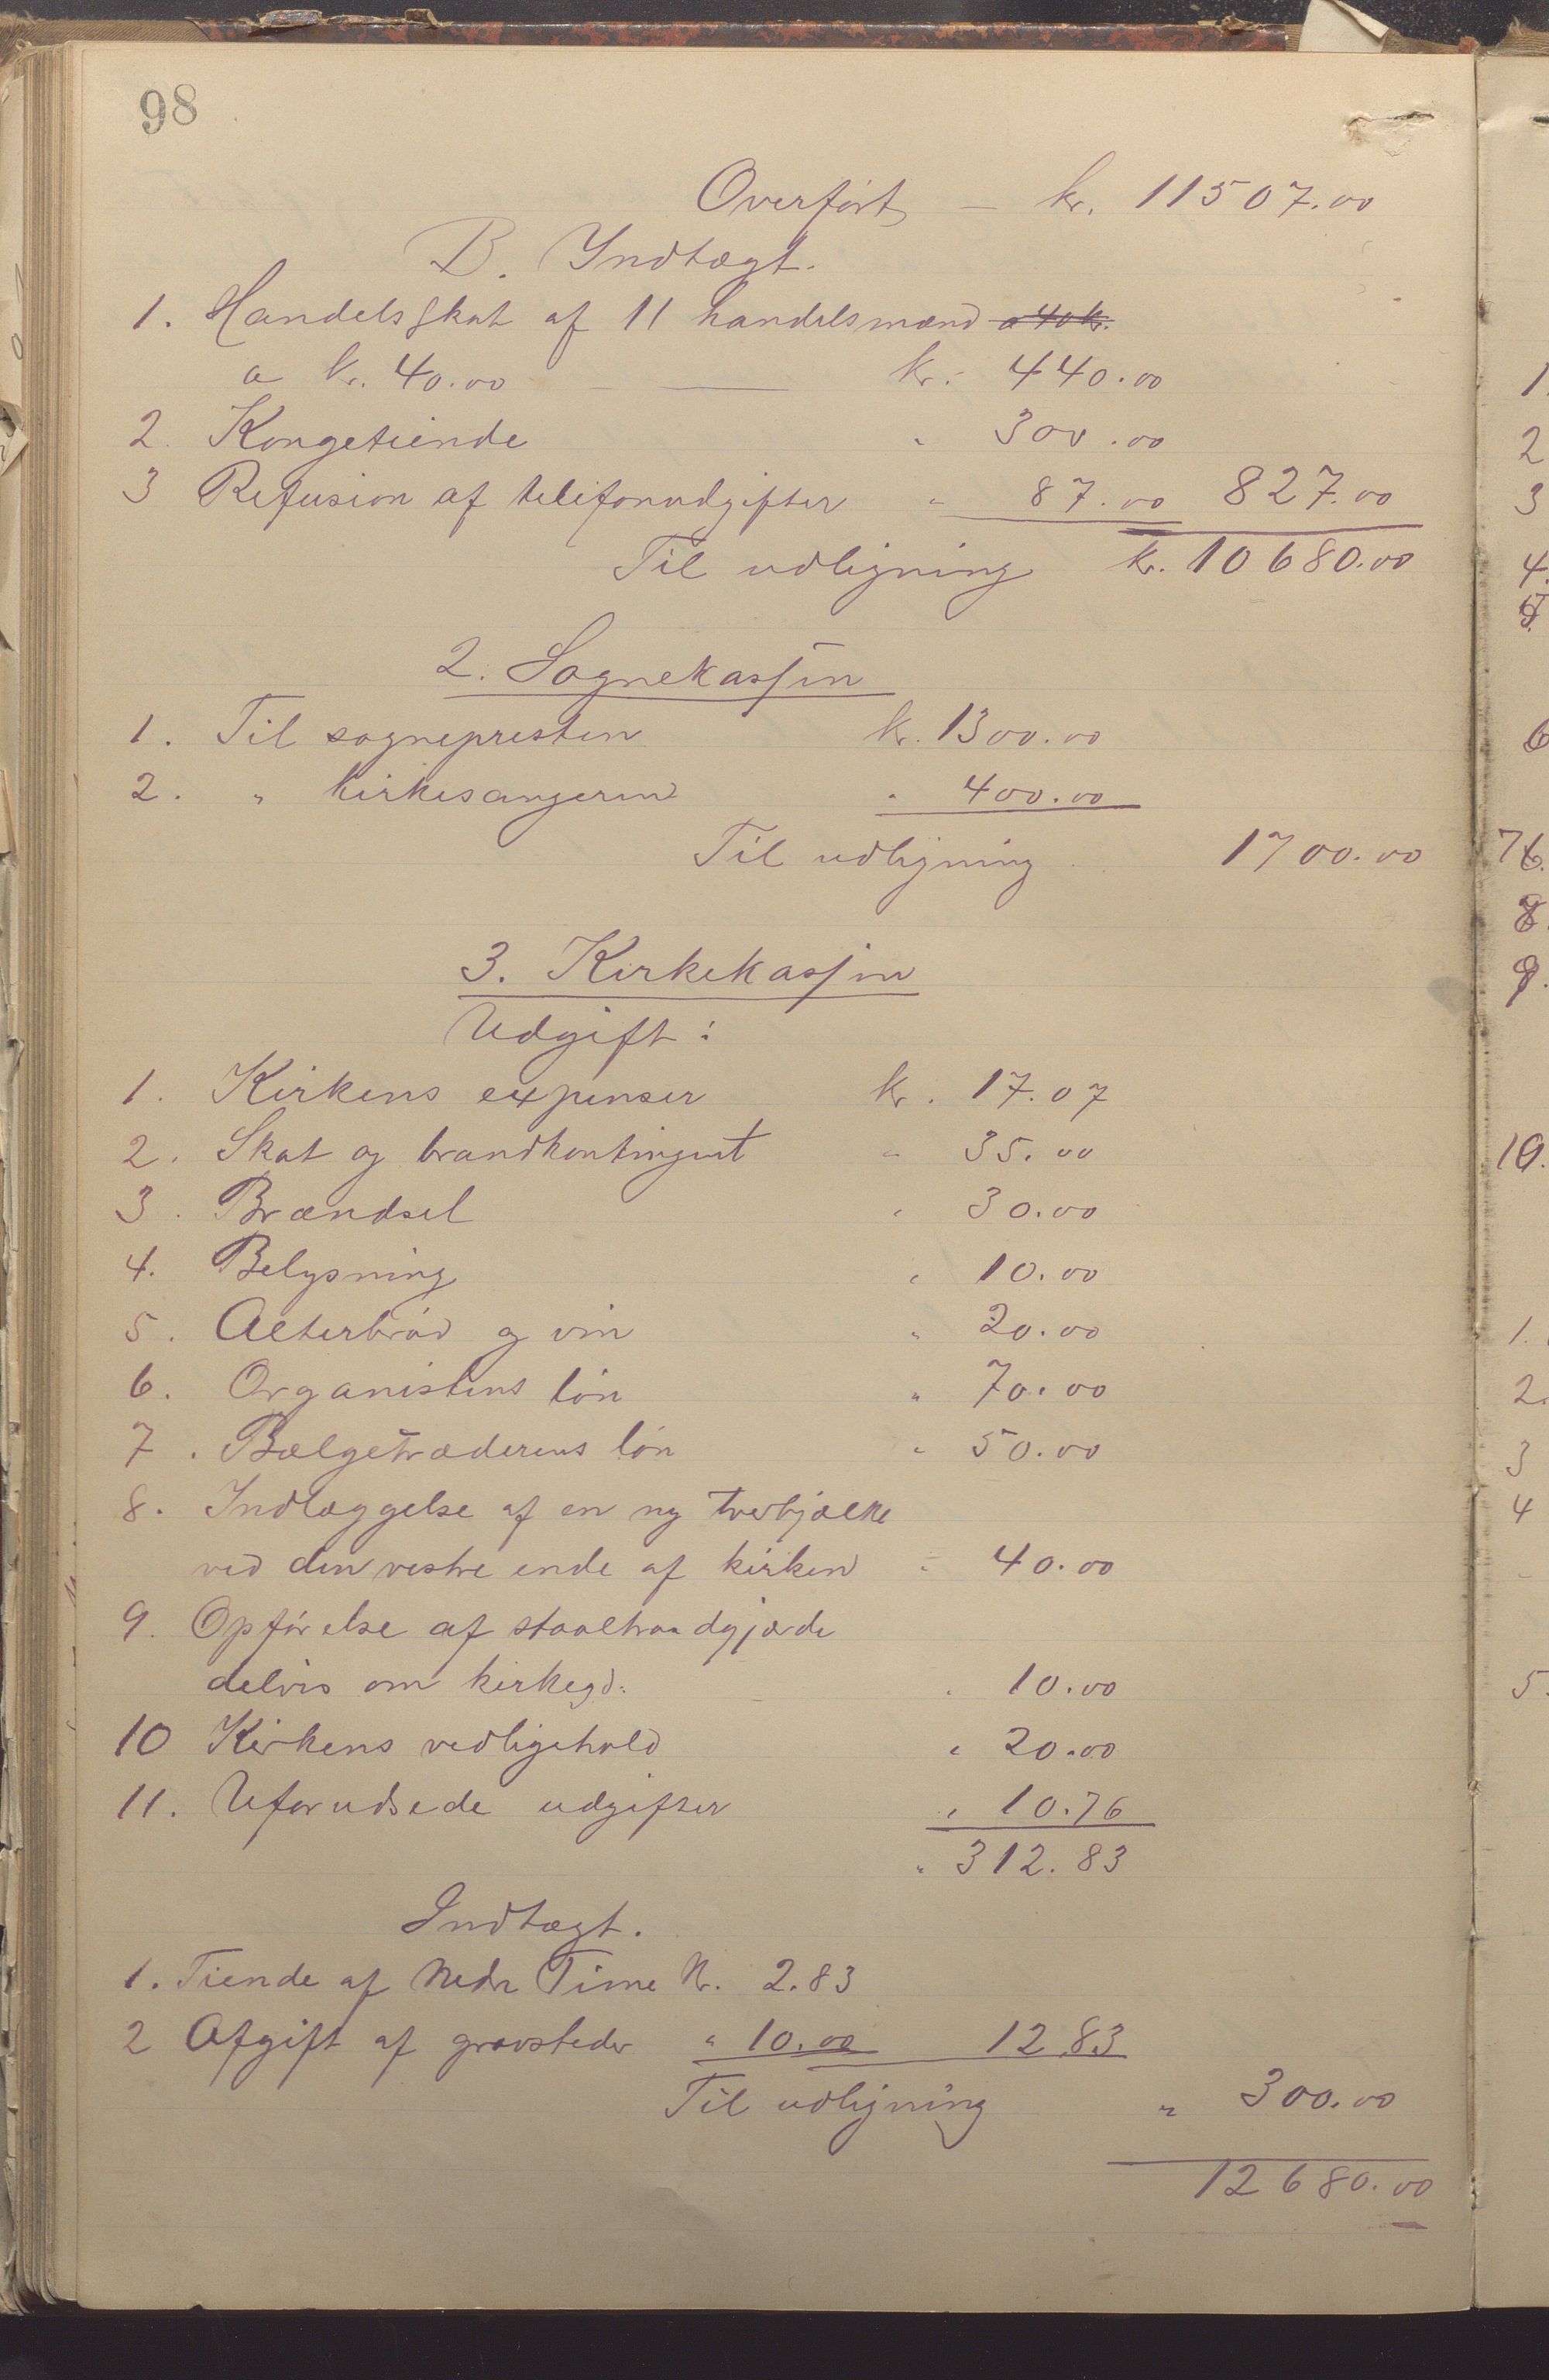 98
Overført – kr. 11507.00
B. Indtægt.
1. Handelsskat af 11 handelsmænd a 40 kr.
a kr. 40.00 – — kr. 440.00
2. Kongetiende " 300.00
3 Refusion af telefonudgifter " 87.00 827.00
Til udligning kr. 10680.00
2. Sognekassen
1. Til sognepresten kr. 1300.00
2. " kirkesangeren " 400.00
Til udligning 1700.00
3. Kirkekassen
Udgift:
1. Kirkens expenser kr. 17.07
2. Skat og brandkontingent " 35.00
3. Brændsel " 30.00
4. Belysning " 10.00
5. Alterbrød og vin " 20.00
6. Organistens løn " 70.00
7. Bælgetræderens løn " 50.00
8. Indlæggelse af en ny tverbjælke
ved den vestre ende af kirken " 40.00
9. Opførelse af staaltraadgjærde
delvis om kirkegd. " 10.00
10 Kirkens vedligehold " 20.00
11. Uforudsede udgifter " 10.76
" 312.83
Indtægt.
1. Tiende af Nedre Time Kr. 2.83
2 Afgift af gravsteder " 10.00 12.83
Til udligning " 300.00
12680.00
1.
2
3
4.
6
8.
9.
10.
1.
2.
3
4
5.